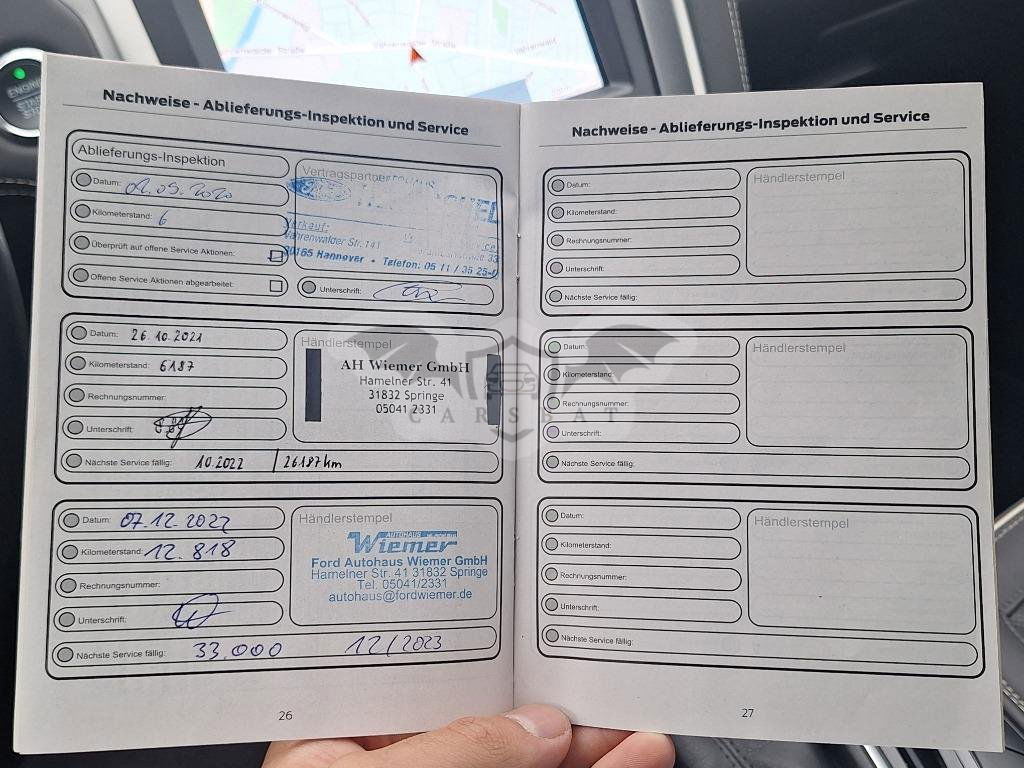 ENGINE
START
Nachweise - Ablieferungs-Inspektion und Service
Ablieferungs-Inspektion
Datum: 02.09.2020
Kilometerstand: 6
Überprüft auf offene Service Aktionen:
Offene Service Aktionen abgearbeitet:
Vertragspartner
Verkauf:
Vahrenwalder Str. 141
30165 Hannover • Telefon: 05 11 / 35 25-0
Unterschrift:
Datum: 26.10.2021
Kilometerstand: 6187
Rechnungsnummer:
Unterschrift:
Nächste Service fällig: 10.2022 | 26187 km
Händlerstempel
AH Wiemer GmbH
Hamelner Str. 41
31832 Springe
05041 2331
Datum: 07.12.2022
Kilometerstand: 12.818
Rechnungsnummer:
Unterschrift:
Nächste Service fällig: 33.000 12/2023
Händlerstempel
AUTOHAUS
Wiemer
Ford Autohaus Wiemer GmbH
Hamelner Str. 41 31832 Springe
Tel. 05041/2331
autohaus@fordwiemer.de
26
Nachweise - Ablieferungs-Inspektion und Service
Datum:
Kilometerstand:
Rechnungsnummer:
Unterschrift:
Nächste Service fällig:
Händlerstempel
Datum:
Kilometerstand:
Rechnungsnummer:
Unterschrift:
Nächste Service fällig:
Händlerstempel
Datum:
Kilometerstand:
Rechnungsnummer:
Unterschrift:
Nächste Service fällig:
Händlerstempel
27
CARSBAT